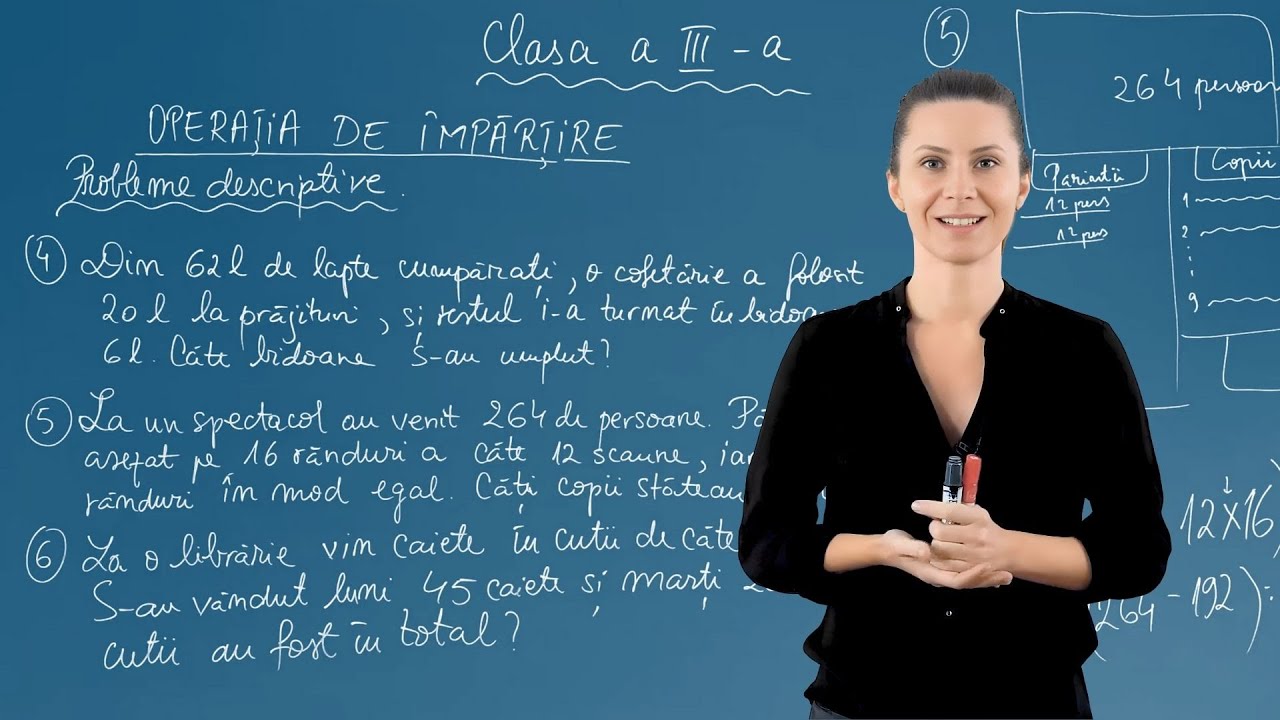 Clasa a III-a
OPERAȚIA DE ÎMPĂRȚIRE
Probleme descriptive.
④ Din 62 l de lapte cumpărați, o cofetărie a folosit
20 l la prăjituri, și restul i-a turnat în
6 l. Câte bidoane s-au umplut?
⑤ La un spectacol au venit 264 de persoane.
așezat pe 16 rânduri a câte 12 scaune,
rânduri în mod egal. Câți copii stăteau
⑥ La o librărie vin caiete în cutii de câte
S-au vândut luni 45 caiete și marți
cutii au fost în total?
⑤
264
Părinții
12 pers
12 pers
Copii
1
2
9
12x16)
(264 - 192) :